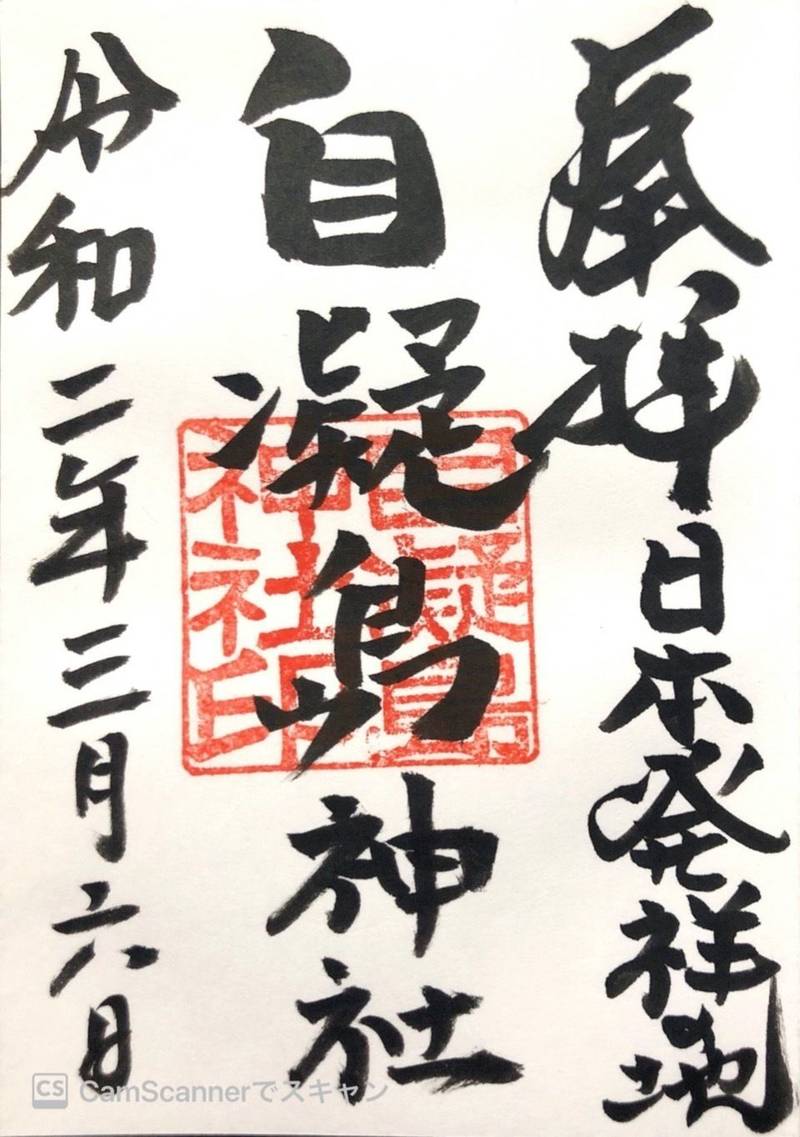 奉拝 日本発祥地
自凝島神社
令和二年三月六日
自凝島
神社印
CS CamScannerでスキャン